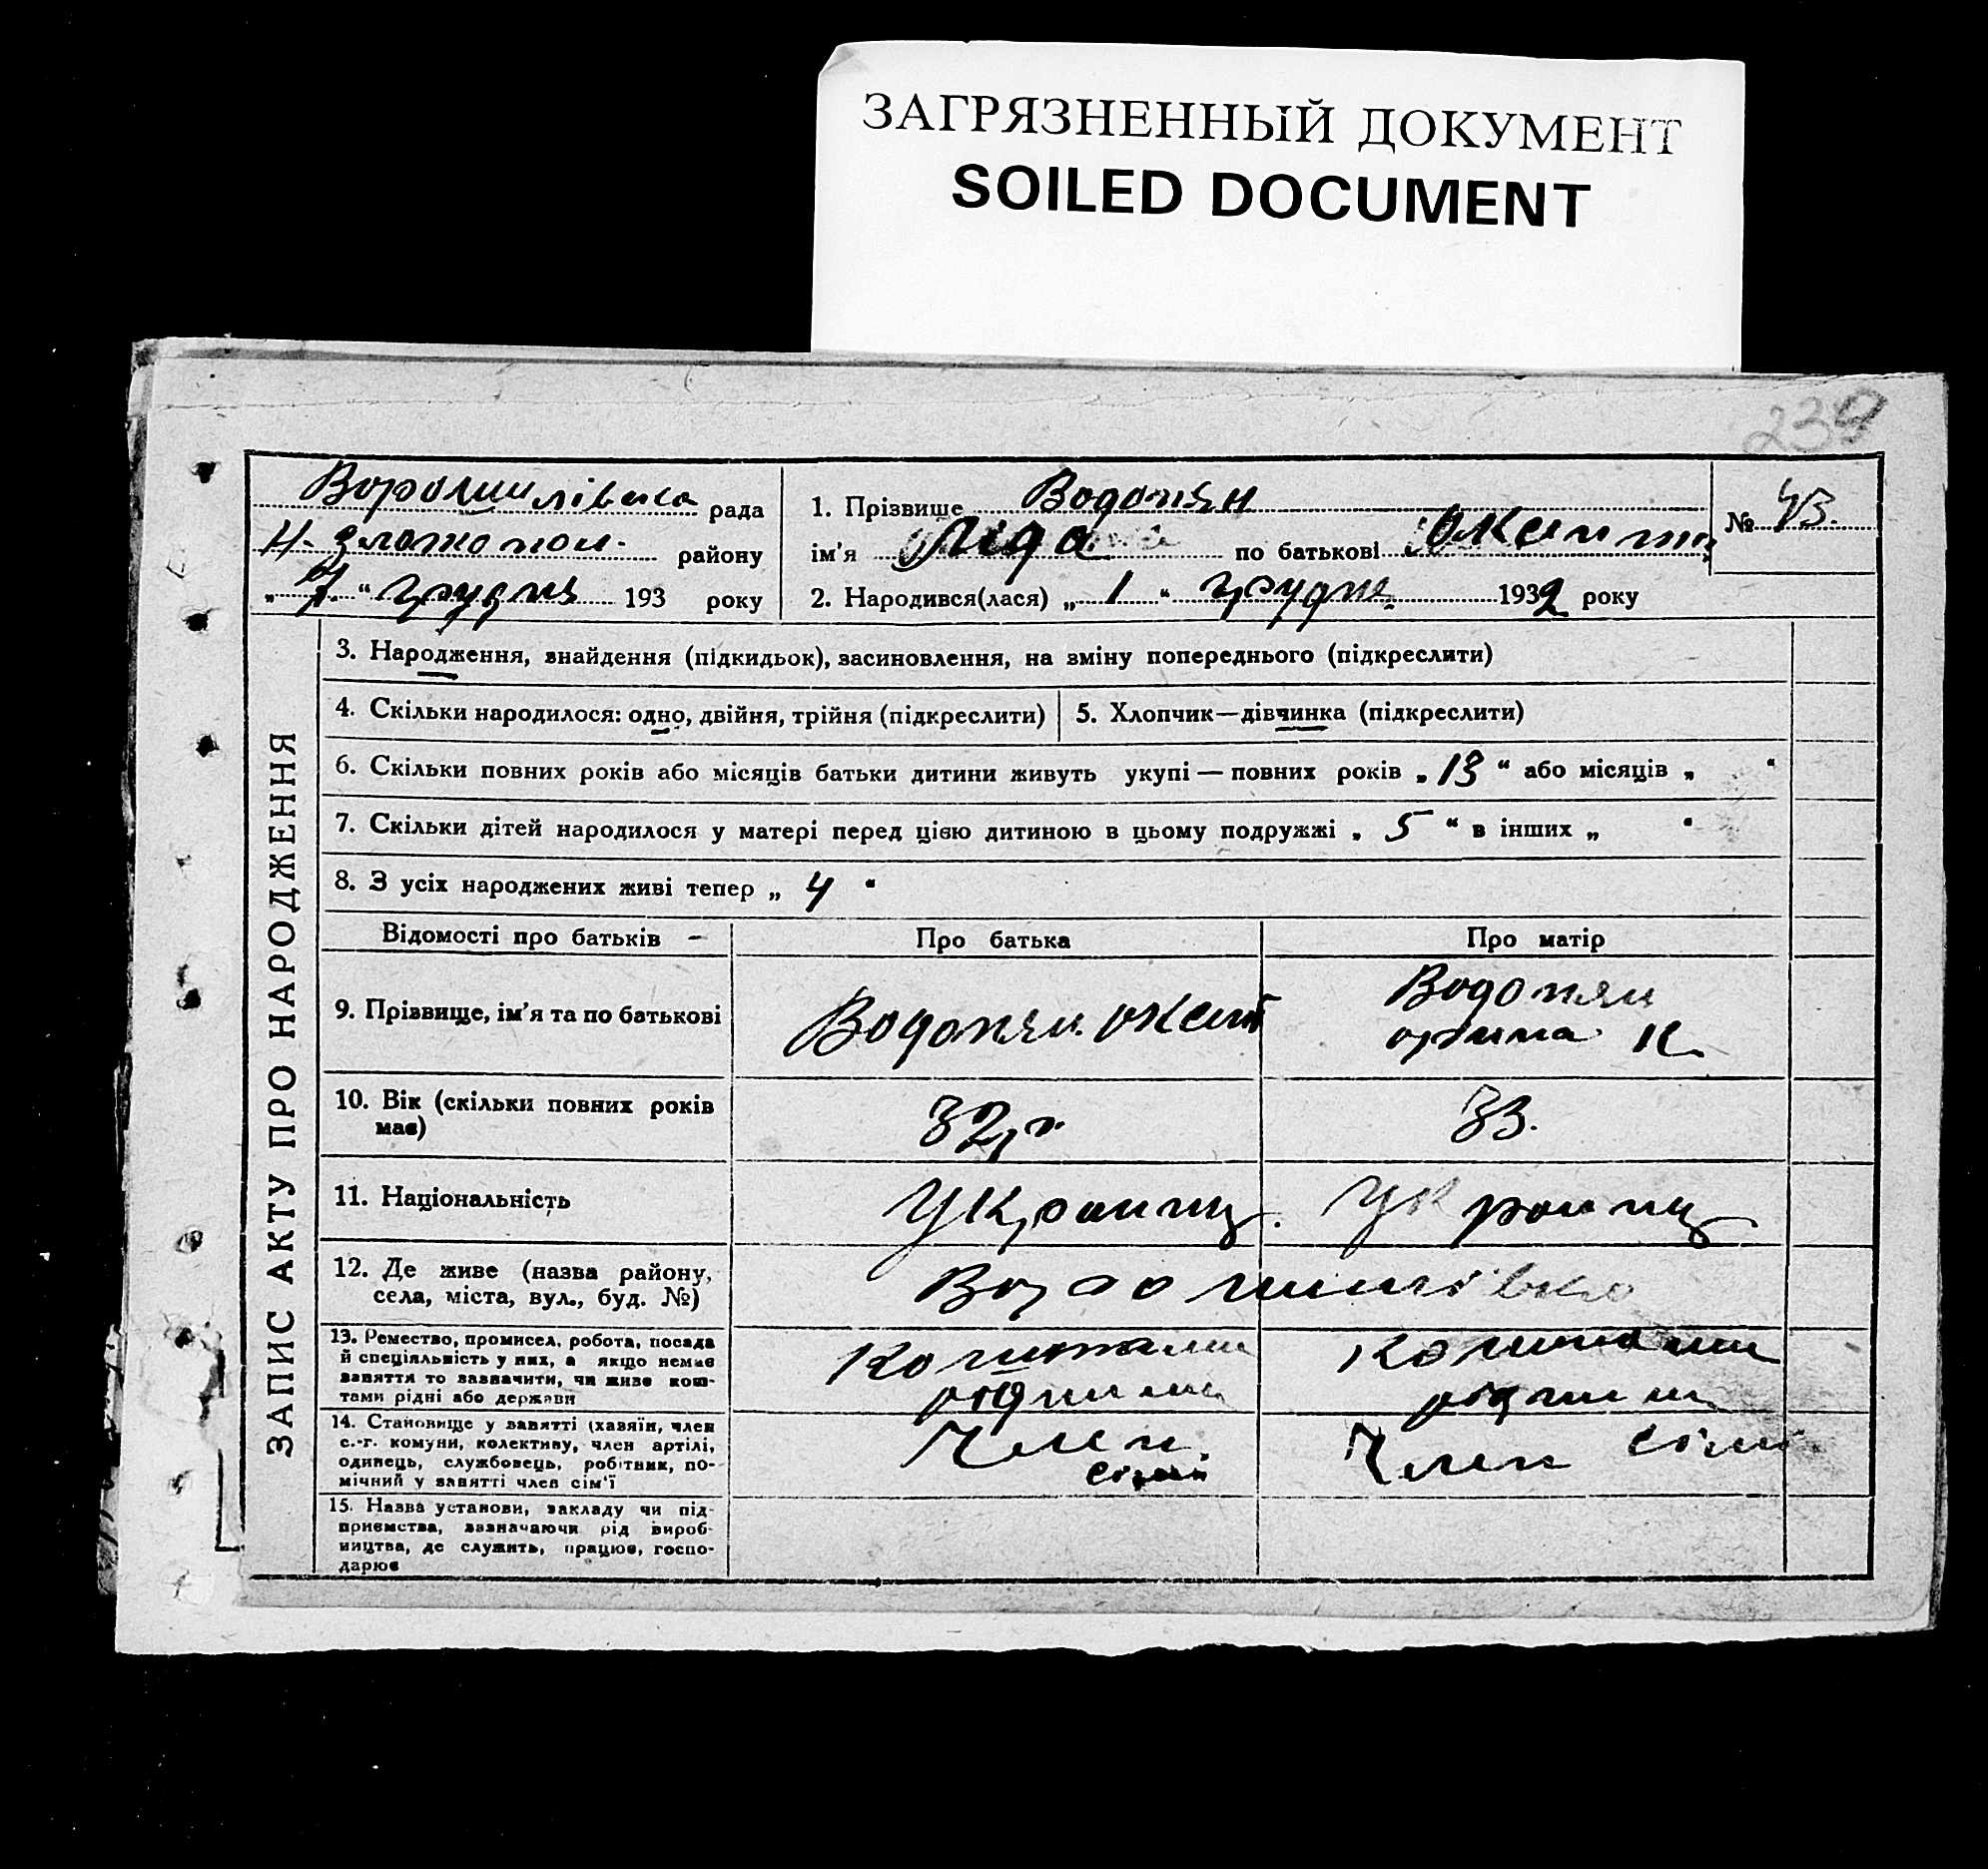 ЗАГРЯЗНЕННЫЙ ДОКУМЕНТ
SOILED DOCUMENT
239
ЗАПИС АКТУ ПРО НАРОДЖЕННЯ
Ворошилівська рада
Н. Златопол. району
„ 7. “ грудня 193 року
1. Прізвище Водопян
ім'я Ліда по батькові Оксент
№ 43.
2. Народився(лася) „ 1 “ грудня 1932 року
3. Народження, знайдення (підкидьок), засиновлення, на зміну попереднього (підкреслити)
4. Скільки народилося: одно, двійня, трійня (підкреслити)
5. Хлопчик—дівчинка (підкреслити)
6. Скільки повних років або місяців батьки дитини живуть укупі — повних років „ 13 “ або місяців „ “
7. Скільки дітей народилося у матері перед цією дитиною в цьому подружжі „ 5 “ в інших „ “
8. З усіх народжених живі тепер „ 4 “
Відомості про батьків
Про батька
Про матір
9. Прізвище, ім'я та по батькові
Водопян Оксент
Водопян
орина К.
10. Вік (скільки повних років
має)
32 р.
33.
11. Національність
Украинц.
Украинц
12. Де живе (назва району,
села, міста, вул., буд. №)
Ворошилівка
13. Ремество, промисел, робота, посада
й спеціяльність у них, а якщо немає
заняття то зазначити, чи живе кош-
тами рідні або держави
Коштами
рідними
Коштами
рідними
14. Становище у занятті (хазяїн, член
с.-г. комуни, колективу, член артілі,
одинець, службовець, робітник, по-
мічний у занятті член сім'ї
Член
сімї
Член сімї
15. Назва установи, закладу чи під-
приємства, зазначаючи рід вироб-
ництва, де служить, працює, госпо-
дарює